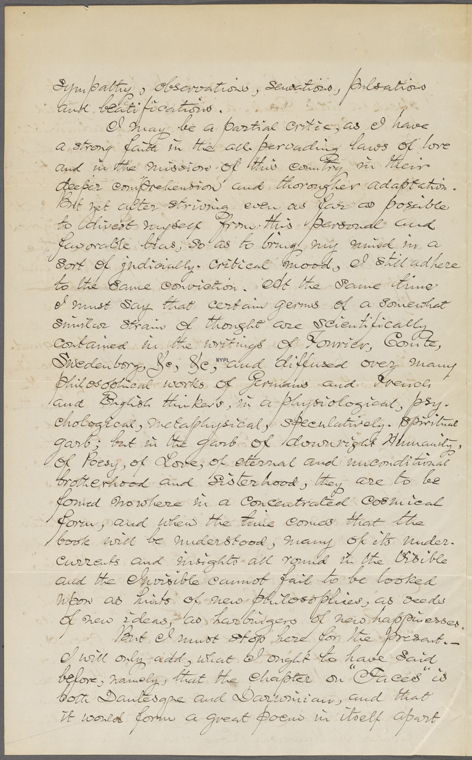 sympathy, observations, sensations, pulsations
and beatifications.
I may be a partial critic, as I have
a strong faith in the all pervading laws of love
and in the mission of this country, in their
deeper comprehension and thorougher adaptation.
But yet after striving even as far as possible
to divest myself from this personal and
favorable bias, so as to bring my mind in a
sort of judicially-critical mood, I still adhere
to the same conviction. At the same time
I must say that certain germs of a somewhat
similar strain of thought are scientifically
contained in the writings of Fourier, Comte,
Swedenborg, &c, &c, and diffused over many
NYPL
philosophical works of Germans and French
and English thinkers, in a physiological, psy-
chological, metaphysical, speculatively-spiritual
garb; but in the garb of downright Humanity,
of Poesy, of Love, of eternal and unconditional
brotherhood and sisterhood, they are to be
found nowhere in a concentrated cosmical
form, and when the time comes that the
book will be understood, many of its under-
currents and insights all round in the Visible
and the Invisible cannot fail to be looked
upon as hints of new philosophies, as seeds
of new ideas, as harbingers of new happinesses.
But I must stop here for the present.—
I will only add, what I ought to have said
before, namely, that the chapter on "Faces" is
both Dantesque and Darwinian, and that
it would form a great poem in itself apart